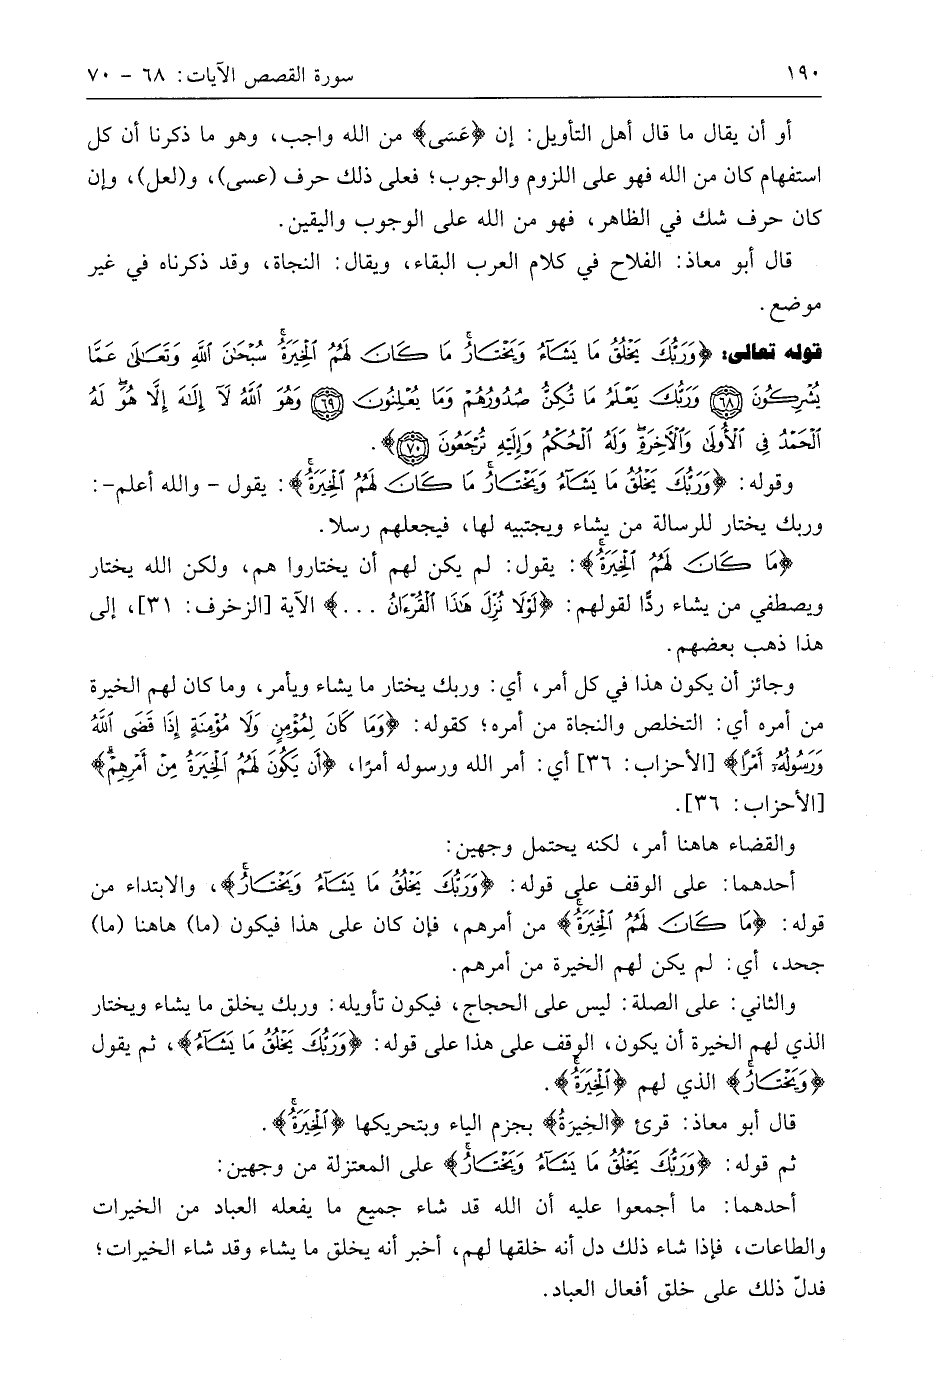 ١٩٠ سورة القصص الآيات: ٦٨ - ٧٠
أو أن يقال ما قال أهل التأويل: إن ﴿عَسَى﴾ من الله واجب، وهو ما ذكرنا أن كل
استفهام كان من الله فهو على اللزوم والوجوب؛ فعلى ذلك حرف (عسى)، و(لعل)، وإن
كان حرف شك في الظاهر، فهو من الله على الوجوب واليقين.
قال أبو معاذ: الفلاح في كلام العرب البقاء، ويقال: النجاة، وقد ذكرناه في غير
موضع.
قوله تعالى: ﴿وَرَبُّكَ يَخْلُقُ مَا يَشَآءُ وَيَخْتَارُۗ مَا كَانَ لَهُمُ ٱلْخِيَرَةُۚ سُبْحَٰنَ ٱللَّهِ وَتَعَٰلَىٰ عَمَّا
يُشْرِكُونَ ٦٨ وَرَبُّكَ يَعْلَمُ مَا تُكِنُّ صُدُورُهُمْ وَمَا يُعْلِنُونَ ٦٩ وَهُوَ ٱللَّهُ لَآ إِلَٰهَ إِلَّا هُوَۖ لَهُ
ٱلْحَمْدُ فِى ٱلْأُولَىٰ وَٱلْأَخِرَةِۖ وَلَهُ ٱلْحُكْمُ وَإِلَيْهِ تُرْجَعُونَ ٧٠﴾.
وقوله: ﴿وَرَبُّكَ يَخْلُقُ مَا يَشَآءُ وَيَخْتَارُۗ مَا كَانَ لَهُمُ ٱلْخِيَرَةُۚ﴾: يقول - والله أعلم-:
وربك يختار للرسالة من يشاء ويجتبيه لها، فيجعلهم رسلا.
﴿مَا كَانَ لَهُمُ ٱلْخِيَرَةُۚ﴾: يقول: لم يكن لهم أن يختاروا هم، ولكن الله يختار
ويصطفي من يشاء ردًّا لقولهم: ﴿لَوْلَا نُزِّلَ هَٰذَا ٱلْقُرْءَانُ ...﴾ الآية [الزخرف: ٣١]، إلى
هذا ذهب بعضهم.
وجائز أن يكون هذا في كل أمر، أي: وربك يختار ما يشاء ويأمر، وما كان لهم الخيرة
من أمره أي: التخلص والنجاة من أمره؛ كقوله: ﴿وَمَا كَانَ لِمُؤْمِنٍ وَلَا مُؤْمِنَةٍ إِذَا قَضَى ٱللَّهُ
وَرَسُولُهُۥٓ أَمْرًا﴾ [الأحزاب: ٣٦] أي: أمر الله ورسوله أمرًا، ﴿أَن يَكُونَ لَهُمُ ٱلْخِيَرَةُ مِنْ أَمْرِهِمْۗ﴾
[الأحزاب: ٣٦].
والقضاء هاهنا أمر، لكنه يحتمل وجهين:
أحدهما: على الوقف على قوله: ﴿وَرَبُّكَ يَخْلُقُ مَا يَشَآءُ وَيَخْتَارُۗ﴾، والابتداء من
قوله: ﴿مَا كَانَ لَهُمُ ٱلْخِيَرَةُۚ﴾ من أمرهم، فإن كان على هذا فيكون (ما) هاهنا (ما)
جحد، أي: لم يكن لهم الخيرة من أمرهم.
والثاني: على الصلة: ليس على الحجاج، فيكون تأويله: وربك يخلق ما يشاء ويختار
الذي لهم الخيرة أن يكون، الوقف على هذا على قوله: ﴿وَرَبُّكَ يَخْلُقُ مَا يَشَآءُ﴾، ثم يقول
﴿وَيَخْتَارُۗ﴾ الذي لهم ﴿ٱلْخِيَرَةُۚ﴾.
قال أبو معاذ: قرئ ﴿الخِيرَةُ﴾ بجزم الياء وبتحريكها ﴿ٱلْخِيَرَةُۚ﴾.
ثم قوله: ﴿وَرَبُّكَ يَخْلُقُ مَا يَشَآءُ وَيَخْتَارُۗ﴾ على المعتزلة من وجهين:
أحدهما: ما أجمعوا عليه أن الله قد شاء جميع ما يفعله العباد من الخيرات
والطاعات، فإذا شاء ذلك دل أنه خلقها لهم، أخبر أنه يخلق ما يشاء وقد شاء الخيرات؛
فدلّ ذلك على خلق أفعال العباد.